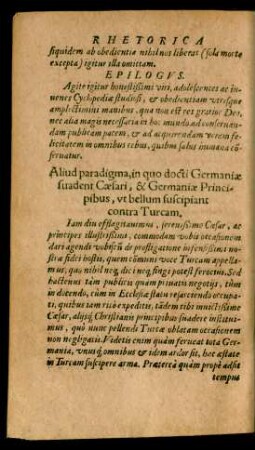 RHETORICA
siquidem ab obedientia nihil nos liberat (sola morte
excepta) igitur illa omittam.
EPILOGVS.
Agite igitur honestissimi viri, adolescentes ac iu-
uenes Cyclopediæ studiosi, & obedientiam vtrisque
amplectimini manibus, qua non est res gratior Deo,
nec alia magis necessaria in hoc mundo ad conseruandam
publicam pacem, & ad acquirendam veram fe-
licitatem in omnibus rebus, quibus salus humana cō-
seruatur.
Aliud paradigma, in quo docti Germaniæ
suadent Cæsari, & Germaniæ Princi-
pibus, vt bellum suscipiant
contra Turcam.
Iam diu efflagitauimus, serenissime Cæsar, ac
principes illustrissimi, commodam nobis occasionem
dari agendi vobiscū de profligatione infensissimi no-
stræ fidei hostis, quem cōmuni voce Turcam appella-
mus, quo nihil neq; dici neq; fingi potest ferocius. Sed
hactenus tàm publicis quàm priuatis negotijs, tùm
in docendo, cùm in Ecclesiæ statu resarciendo occupa-
ti, quibus tam rei expeditis, tādem tibi inuictissime
Cæsar, alijsq; Christianis principibus suadere institui-
mus, quò nunc pellendi Turcæ oblatam occasionem
non negligatis. Videtis enim quàm ferueat tota Ger-
mania, vnusq; omnibus & idem ardor sit, hoc æstate
in Turcam suscipere arma. Præterea quàm propè adsit
tempus